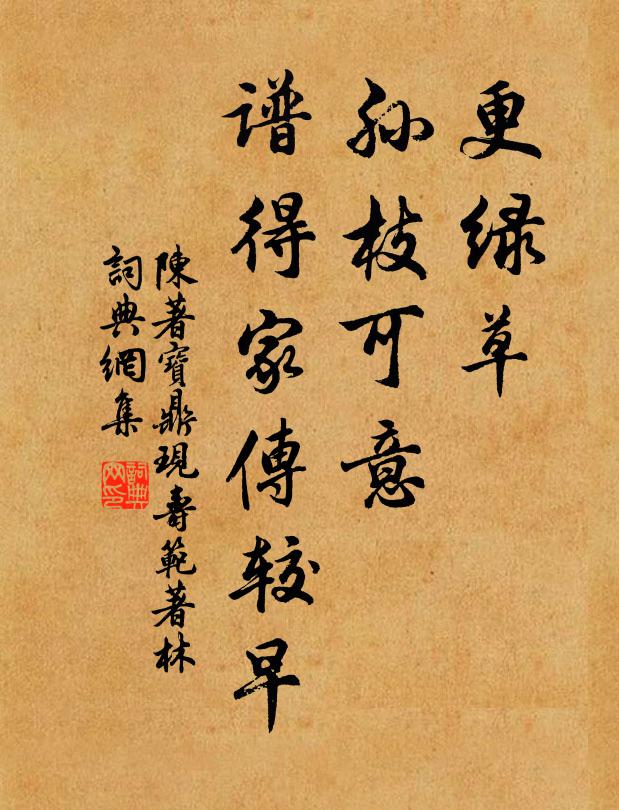 更绿草
孙枝可意
谱得家傳较早
陳著寶鼎現壽範著林
詞典網集
詞典網印